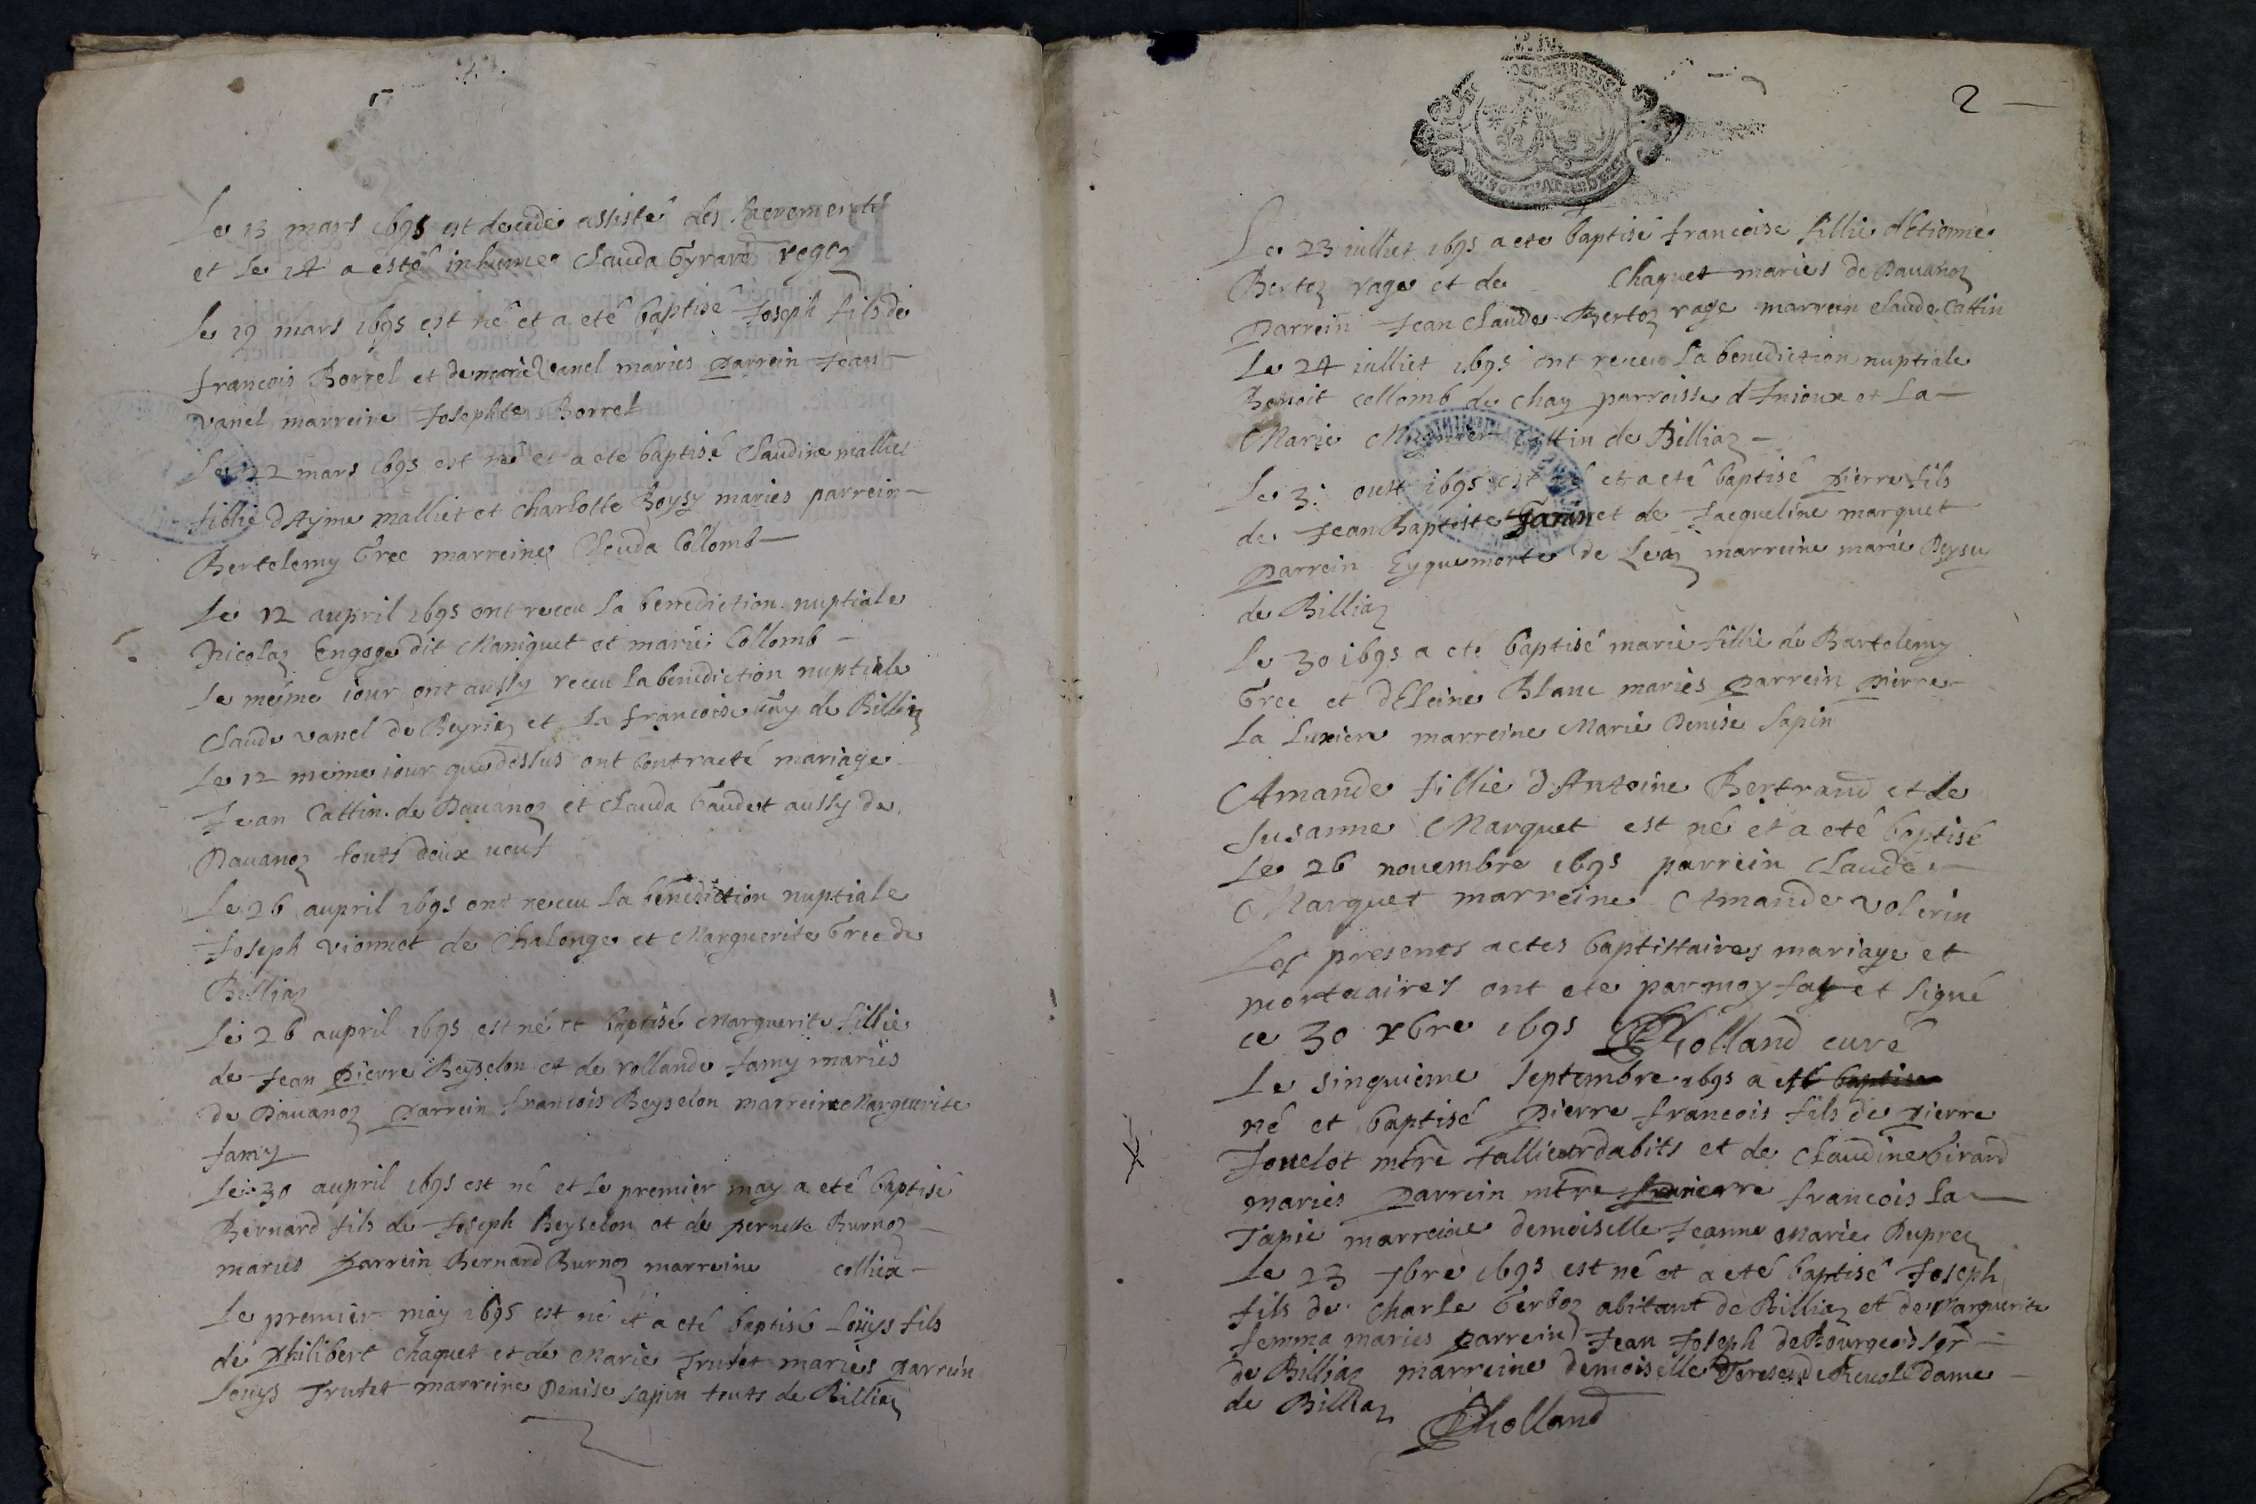 Le 13 mars 1695 est decede assisté des sacrements
et le 14 a esté inhumee Clauda Gyrard roger
le 19 mars 1695 est né et a eté baptisé Joseph fils de
francois Borrel et de marie vanel mariés parrein Jean
vanel marreine Josephte Borrel
Le 22 mars 1695 est né et a eté baptisé Claudine malliet
fillie d'Ayme malliet et Charlotte Boysy maries parrein
Bertelemy Gree marreine Clauda Collomb
Le 12 aupril 1695 ont receu la benediction nuptiale
Nicolaz Engoge dit Maniquet et marie Collomb
Le méme iour ont aussy receu la benediction nuptiale
Claude vanel de Beyriez et la francoise de Billiaz
Le 12 méme iour que dessus ont contracté mariage
Jean Cattin de Dauanoz et Clauda Gaudet aussy de
Dauanoz touts deux ueuf
Le 26 aupril 1695 ont receu la benediction nuptiale
Joseph vionnot de Chalonge et Marguerite Gree de
Billiaz
Le 26 aupril 1695 est né et baptisé Marguerite fillie
de Jean pierre Beyselon et de rollande famy mariés
de Dauanoz parrein francois Beyselon marreine Marguerite
famy
Le 30 aupril 1695 est né et le premier may a eté baptisé
Bernard fils de Joseph Beyselon et de pernette Burnoz
maries parrein Bernard Burnoz marreine colliex
Le premier may 1695 est né et a eté baptisé Loüys fils
de philibert Chaquet et de Marie Trutet mariés parrein
Louys Trutet marreine Denise sapin touts de Billiaz
2
Le 23 iulliet 1695 a ete baptisé francoise fillie d'Etienne
Bertoz rage et de Chaquet mariés de Dauanoz
parrein Jean Claude Bertoz rage marrein claude Cattin
Le 24 iulliet 1695 ont receu la benediction nuptiale
Benoit Collomb de Chay parroisse d'Inioux et la
Marie Cattin de Billiaz
Le 3. oust 1695 est né et a eté baptisé pierre fils
de Jean Baptiste Janin et de Jacqueline marquet
parrein Eyquemorte de Leaz marreine marie Beyse
de Billiaz
Le 30 1695 a eté baptisé marie fillie de Bartelemy
Gree et d'Eleine Blanc mariés parrein pierre
La Luxiere marreine Marie Denise sapin
Amande fillie d'Antoine Bertrand et de
Susanne Marquet est né et a eté baptisé
Le 26 nouembre 1695 parrein Claude
Marquet marreine Amande volerin
Les presents actes baptistaires mariage et
mortuaires ont ete par moy fay et signé
ce 30 xbre 1695 Rholland curé
Le sinquieme septembre 1695 a eté baptisé
né et baptisé pierre francois fils de pierre
Jouelot mtre tallieur dabits et de Claudine Girard
maries parrein mtre francois la
Tapie marreine demoiselle Jeanne Marie Duprez
Le 23 7bre 1695 est né et a eté baptisé Joseph
fils de Charle Gerboz abitant de Billiaz et de Marguerite
femma maries parrein Jean Joseph de Bourgeois sgr
de Billiaz marreine demoiselle Terese de dame
de Billiaz Rholland